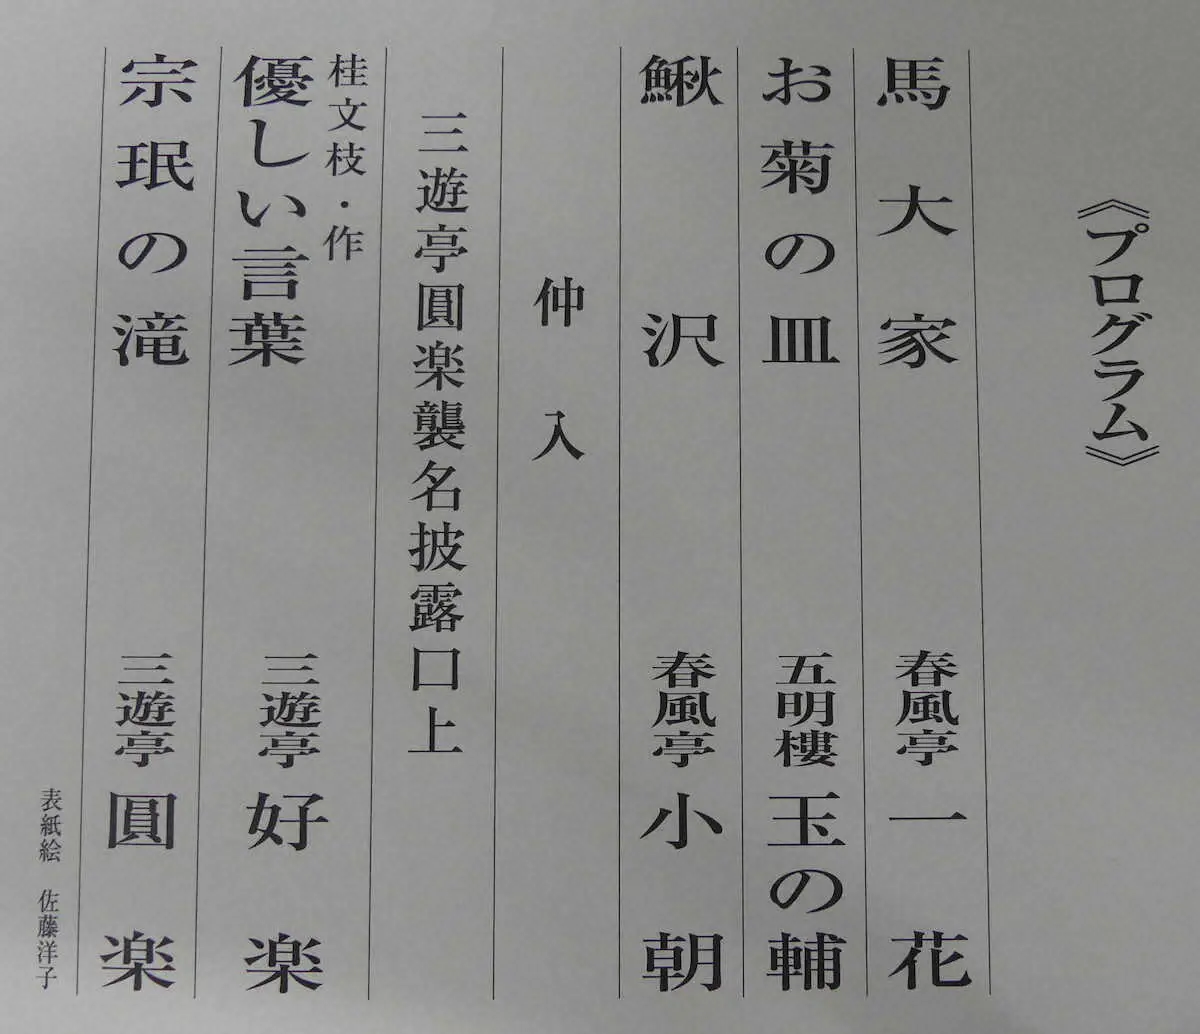 《プログラム》
馬大家 春風亭一花
お菊の皿 五明樓玉の輔
鰍沢 春風亭小朝
仲入
三遊亭圓楽襲名披露口上
桂文枝・作
優しい言葉 三遊亭好楽
宗珉の滝 三遊亭圓楽
表紙絵 佐藤洋子